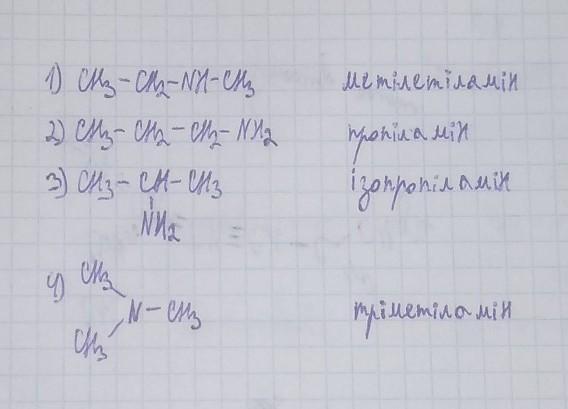 1) CH3-CH2-NH-CH3 метілетіламін
2) CH3-CH2-CH2-NH2 пропіламін
3) CH3-CH-CH3 ізопропіламін
NH2
4) CH3
N-CH3 тріметіламін
CH3